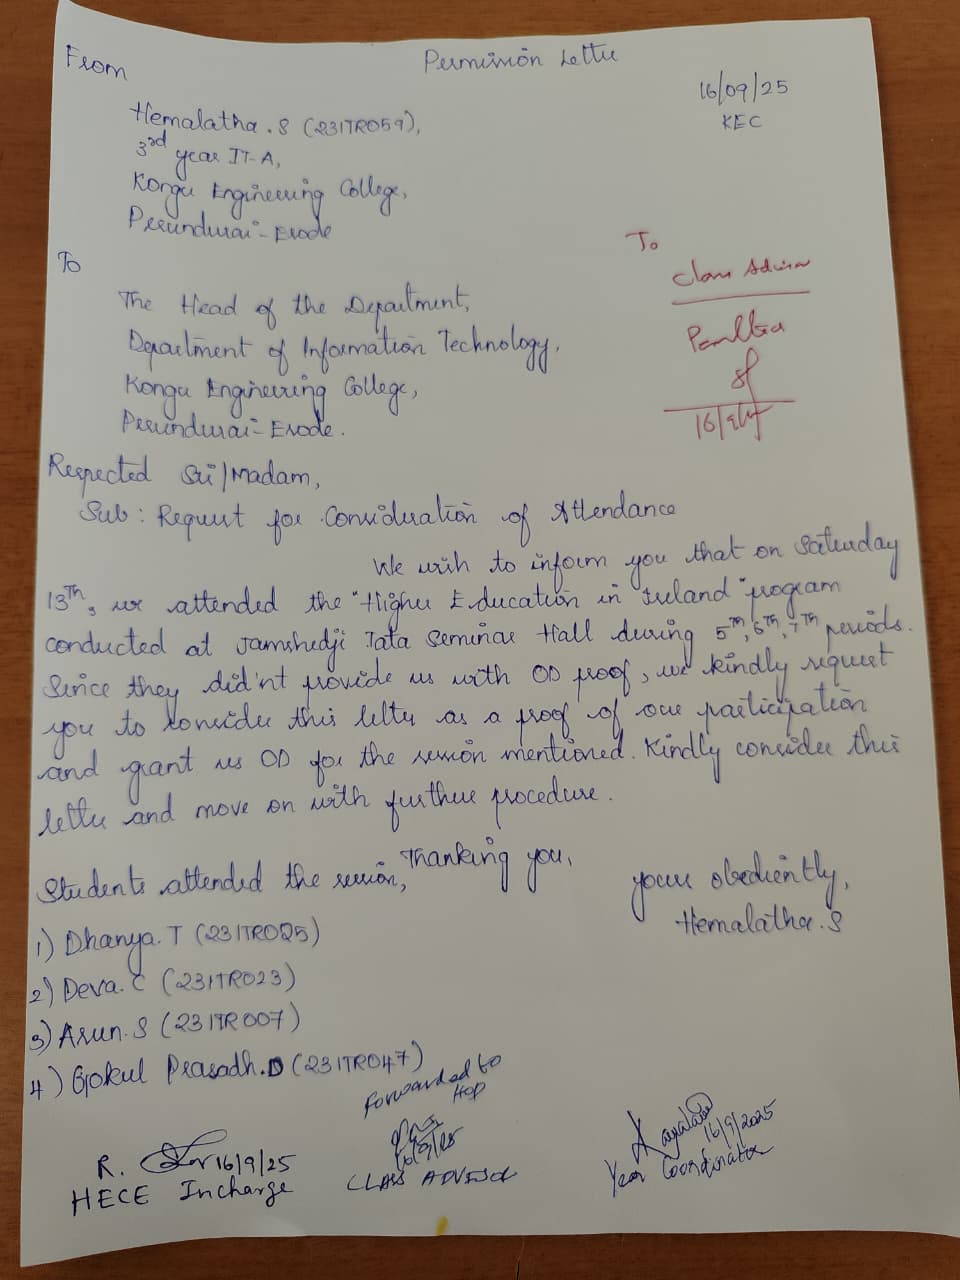 Permission Letter
From
16/09/25
KEC
Hemalatha.S (23ITR059),
3rd year IT-A,
Kongu Engineering College,
Perundurai-Erode
To
The Head of the Department,
Department of Information Technology,
Kongu Engineering College,
Perundurai-Erode.
To
Class Advisor
16/9/25
Respected Sir/Madam,
Sub: Request for Consideration of Attendance
We wish to inform you that on Saturday
13TH, we attended the "Higher Education in Ireland" program
conducted at Jamshedji Tata Seminar Hall during 5TH, 6TH, 7TH periods.
Since they did'nt provide us with OD proof, we kindly request
you to consider this letter as a proof of our participation
and grant us OD for the session mentioned. Kindly consider this
letter and move on with further procedure.
Thanking you,
Students attended the session,
yours obediently,
Hemalatha.S
1) Dhanya.T (23ITR025)
2) Deva.C (23ITR023)
3) Arun.S (23ITR007)
4) Gokul Prasadh.D (23ITR047)
Forwarded to
HOD
R. 16/9/25
HECE Incharge
16/9/25
CLASS ADVISOR
16/9/2025
Year Coordinator